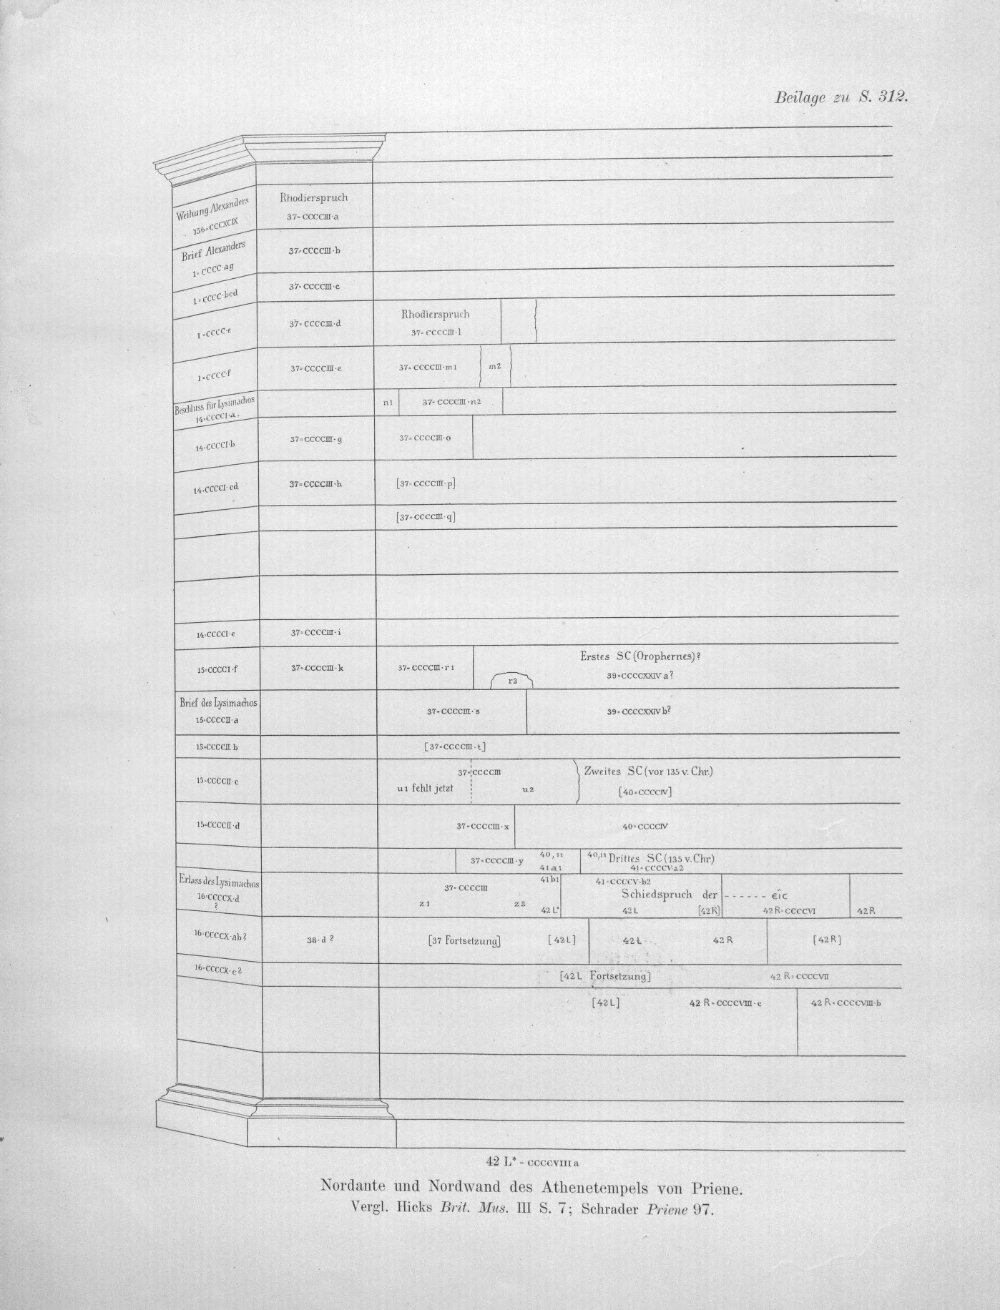 Beilage zu S. 312.
Weihung Alexanders
156=CCCXCIX
Rhodierspruch
37=CCCCIII·a
Brief Alexanders
1=CCCC·ag
37=CCCCIII·b
1=CCCC·bcd
37=CCCCIII·c
1=CCCC·e
37=CCCCIII·d
Rhodierspruch
37=CCCCIII·l
1=CCCC·f
37=CCCCIII·e
37=CCCCIII·m1
m2
Beschluss für Lysimachos
14=CCCCI·a.
n1
37=CCCCIII·n2
14=CCCCI·b
37=CCCCIII·g
37=CCCCIII·o
14=CCCCI·cd
37=CCCCIII·h
[37=CCCCIII·p]
[37=CCCCIII·q]
14=CCCCI·e
37=CCCCIII·i
15=CCCCI·f
37=CCCCIII·k
37=CCCCIII·r1
r2
Erstes SC (Orophernes)?
39=CCCCXXIV a?
Brief des Lysimachos
15=CCCCII·a
37=CCCCIII·s
39=CCCCXXIV b?
15=CCCCII b
[37=CCCCIII·t]
15=CCCCII·c
37=CCCCIII
u1 fehlt jetzt
u2
Zweites SC (vor 135 v. Chr.)
[40=CCCCIV]
15=CCCCII·d
37=CCCCIII·x
40=CCCCIV
37=CCCCIII·y
40,11
41 a1
40,11 Drittes SC (135 v. Chr)
41=CCCCV·a2
Erlass des Lysimachos
16=CCCCX·d
?
37=CCCCIII
z1
z2
41 b1
42 L*
41=CCCCV·b2
Schiedspruch der ------ εῖς
42 L
[42 R]
42 R=CCCCVI
42 R
16=CCCCX·ab?
38·d ?
[37 Fortsetzung]
[42 L]
42 L
42 R
[42 R]
16=CCCCX·c?
[42 L Fortsetzung]
42 R=CCCCVII
[42 L]
42 R=CCCCVIII·c
42 R=CCCCVIII·b
42 L* = CCCCVIII a
Nordante und Nordwand des Athenetempels von Priene.
Vergl. Hicks Brit. Mus. III S. 7; Schrader Priene 97.